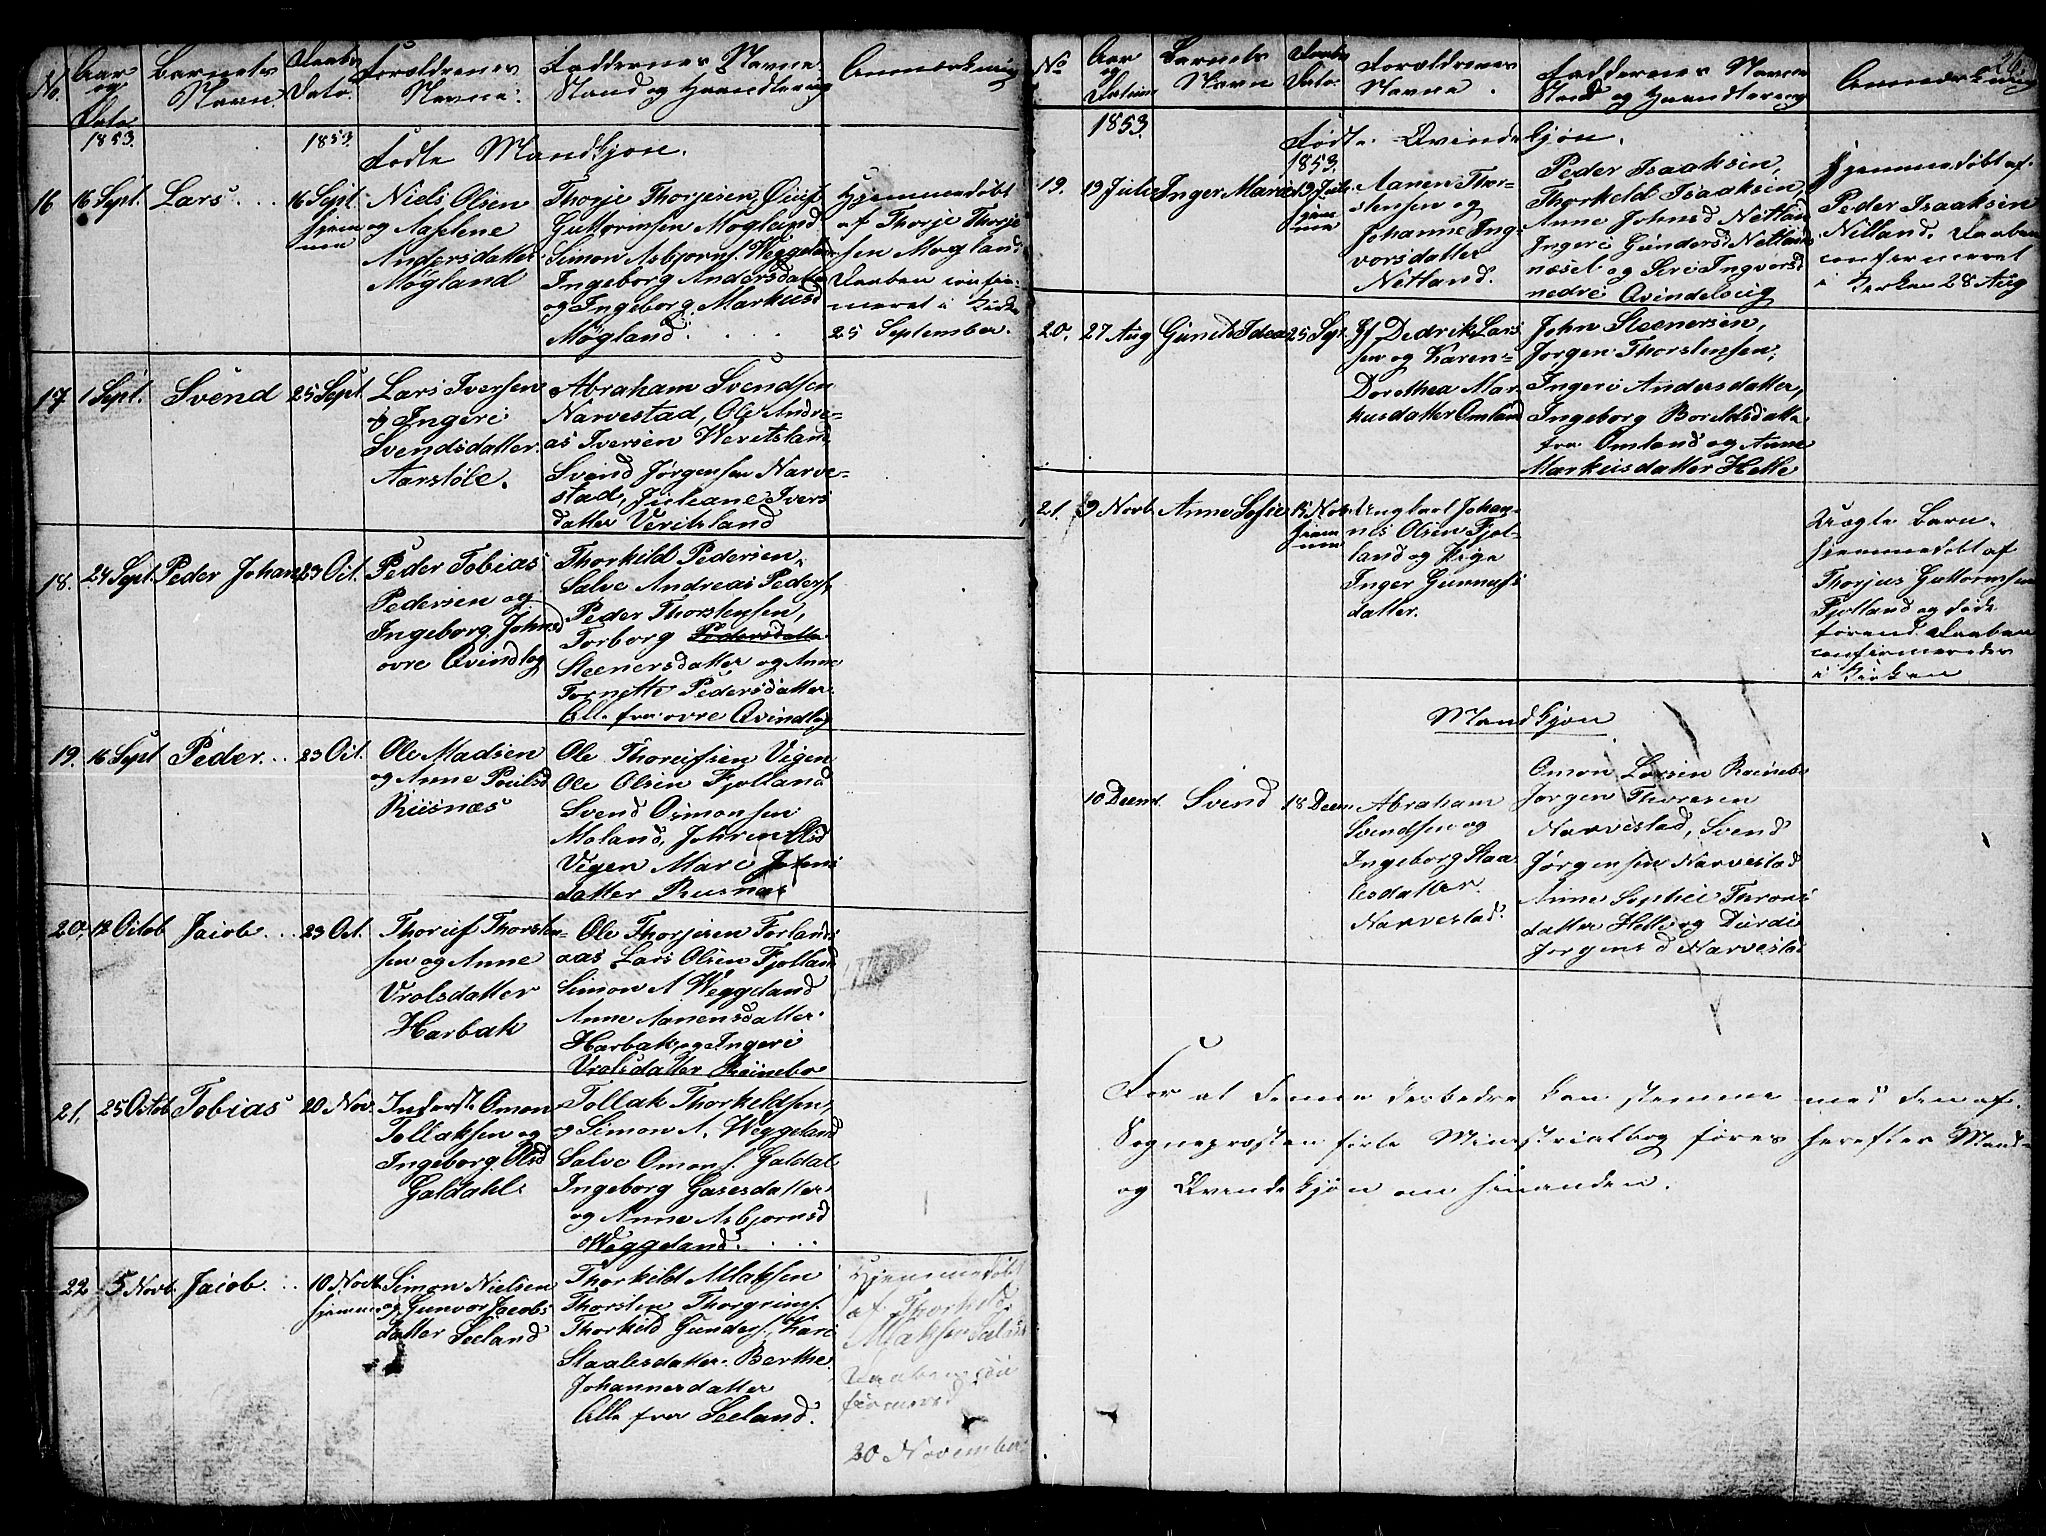 No. Aar og Dato Barnets Navn. Daabs Dato. Forældrenes Navne. Faddernes Navne Stand og Haandtering Anmærkning
1853. 1853. Fødte Mandkjøn.
16 16 Sept. Lars. . . 16 Sept. hjemme
Niels Olsen
og Aaselene
Andersdatter
Møgland
Thorje Thorjesen,
Guttormsen Møgland
Simon Asbjørns. Weggeland
Ingeborg Andersdatter
og Ingeborg Markusd
Møgland. . .
Hjemmedøbt
af Thorje Thorje
sen Møgland
Daaben confir-
meret i Kirke
25 September.
17 1 Sept. Svend 25 Sept.
Lars Iversen
& Ingeri
Svendsdatter.
Aarstöle.
Abraham Svendsen
Narvestad, Ole Andre-
as Iversen Weritsland,
Svend Jørgensen Narve-
stad, Juliane Ivers
datter Veritsland
18. 24 Sept. Peder Johan 23 Oct.
Peder Tobias
Pedersen og
Ingeborg Johnsd
øvre Qvindlog
Thorkild Pedersen,
Salve Andreas Peders.
Peder Thorstensen,
Torborg Pedersdatter
Steenersdatter og Anne
Tornette Pedersdatter.
Alle fra øvre Qvindlog
19. 16 Sept Peder. . . 23 Oct.
Ole Madsen
og Anne Poulsd
Riisnæs
Ole Thoreifsen Vigen
Ole Olsen Fjolland
Svend Osmonsen
Moland, Johren Olsd
Vegen Mari Johns
datter Rusnæs
20. 12 Octob Jacob. . . 23 Oct.
Thoreif Thorsten-
sen og Anne
Vrolsdatter
Harbak
Ole Thorjesen Forlands
aas Lars Olsen Fjolland
Simon A Weggeland
Anne Aanensdatter
Harbak, og Ingeri
Vrolsdatter Reinebo
21. 25 Octob Tobias 20 Nov.
Inderst. Omon
Tollaksen og
Ingeborg Olsd
Galdahl.
Tollak Thorkeldsen,
og Simon A. Weggeland
Salve Omons. Galdal
Ingeborg Gasesdatter
og Anne Asbjørnsd
Weggeland. . . .
22 5 Novb. Jacob. . . 10 Novb. hjemme
Simon Nielsen
og Gunvor Jacobs
datter Seeland
Thorkild Aslaksen
Thorsten Thorgrims.
Thorkild Gunders. Kari
Staalesdatter. Berthe
Johannesdatter
Alle fra Seeland.
Hjemmedøbt
af Thorkild
Aslaksen Seeland
Daaben con
firmered
20 November
No Aar og Datum Barnets Navn Daabs Dato. Forældrenes Navne. Faddernes Navne Stand og Haandtering Anmærkning
26
1853. Fødte Qvinde Kjøn.
1853.
19. 19 Juli Inger Marie 19 Juli. hjemme
Aanen Thor-
stensen og
Johanne Ing-
vorsdatter
Netland.
Peder Isaaksen,
Thorkeld Isaaksen,
Anne Johnsd Netland
Ingeri Gundersd Netland
næset og Seri Ingvorsd
nedre Qvindelog
Hjemmedøbt af
Peder Isaaksen
Netland. Daaben
confirmeret
i Kirken 28 Aug
20. 27 Aug 25 Spt
Dedrik Lars
sen og Karen
Dorothea Mar-
kusdatter Omland
John Steenersen,
Jørgen Thorstensen,
Ingeri Andersdatter,
Ingeborg Boretisdatter
fra Omland og Anne
Markusdatter Helle
21. 9 Novb. Anne Sofie 13 Nov. hjemme
Ungkarl Johan-
nes Olsen Fjol-
land og Pige
Inger Gunnufs-
datter.
Uægte Barn.
hjemmedøbt af
Thorjus Guttormsen
Fjolland og døde
førend Daaben
confirmeredes
i Kirken
Mandkjøn
10 Decmb. Svend 18 Decm
Abraham
Svendsen og
Ingeborg Staa-
lesdatter.
Narvestad.
Omon Larsen Reinebo
Jørgen Thoresen
Narvestad, Svend
Jørgensen Narvestad
Anne Sophie Tarons
datter Helle og Durdi
Jorgensd Narvestad
For at denne desbedre kan stemme med den af
Sognepræsten førte Ministerialbog føres herefter Mand-
og Qvindekjøn om hinanden.